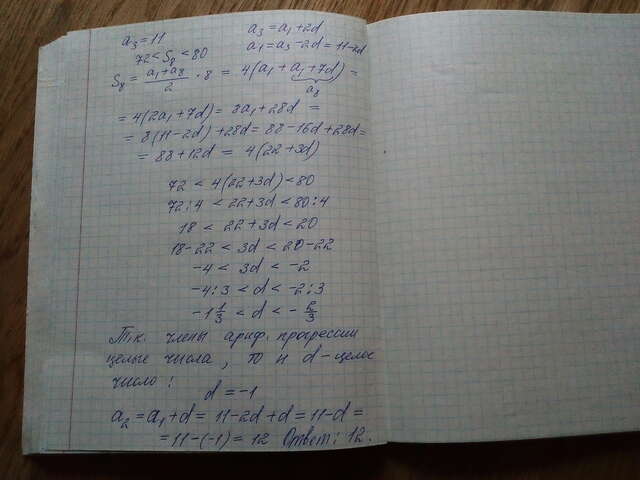 a₃ = 11
a₃ = a₁ + 2d
72 < S₈ < 80
a₁ = a₃ - 2d = 11 - 2d
S₈ = (a₁ + a₈)/2 · 8 = 4(a₁ + a₁ + 7d) =
a₈
= 4(2a₁ + 7d) = 8a₁ + 28d =
= 8(11 - 2d) + 28d = 88 - 16d + 28d =
= 88 + 12d = 4(22 + 3d)
72 < 4(22 + 3d) < 80
72 : 4 < 22 + 3d < 80 : 4
18 < 22 + 3d < 20
18 - 22 < 3d < 20 - 22
-4 < 3d < -2
-4 : 3 < d < -2 : 3
-1 1/3 < d < - 2/3
Т.к. члены ариф. прогрессии
целые числа, то и d - целое
число!
d = -1
a₂ = a₁ + d = 11 - 2d + d = 11 - d =
= 11 - (-1) = 12 Ответ: 12.